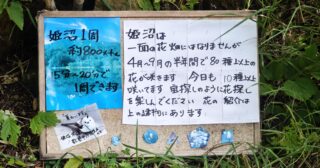 姫沼1周
約800m
5分〜20分で
1周できます
姫沼は
一面の花畑にはなりませんが
4月〜9月の半年間で80種以上の
花が咲きます 今日も10種以上
咲いてます 宝探しのように花探し
を楽しんでください 花の紹介は
上の建物にあります。